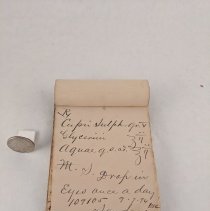 ℞
Cupri Sulph gr. v
Glycerin ʒ ij
Aquae q.s. ad ℥ ij
M. S. Drop in
Eyes once a day
409105 9-7-94